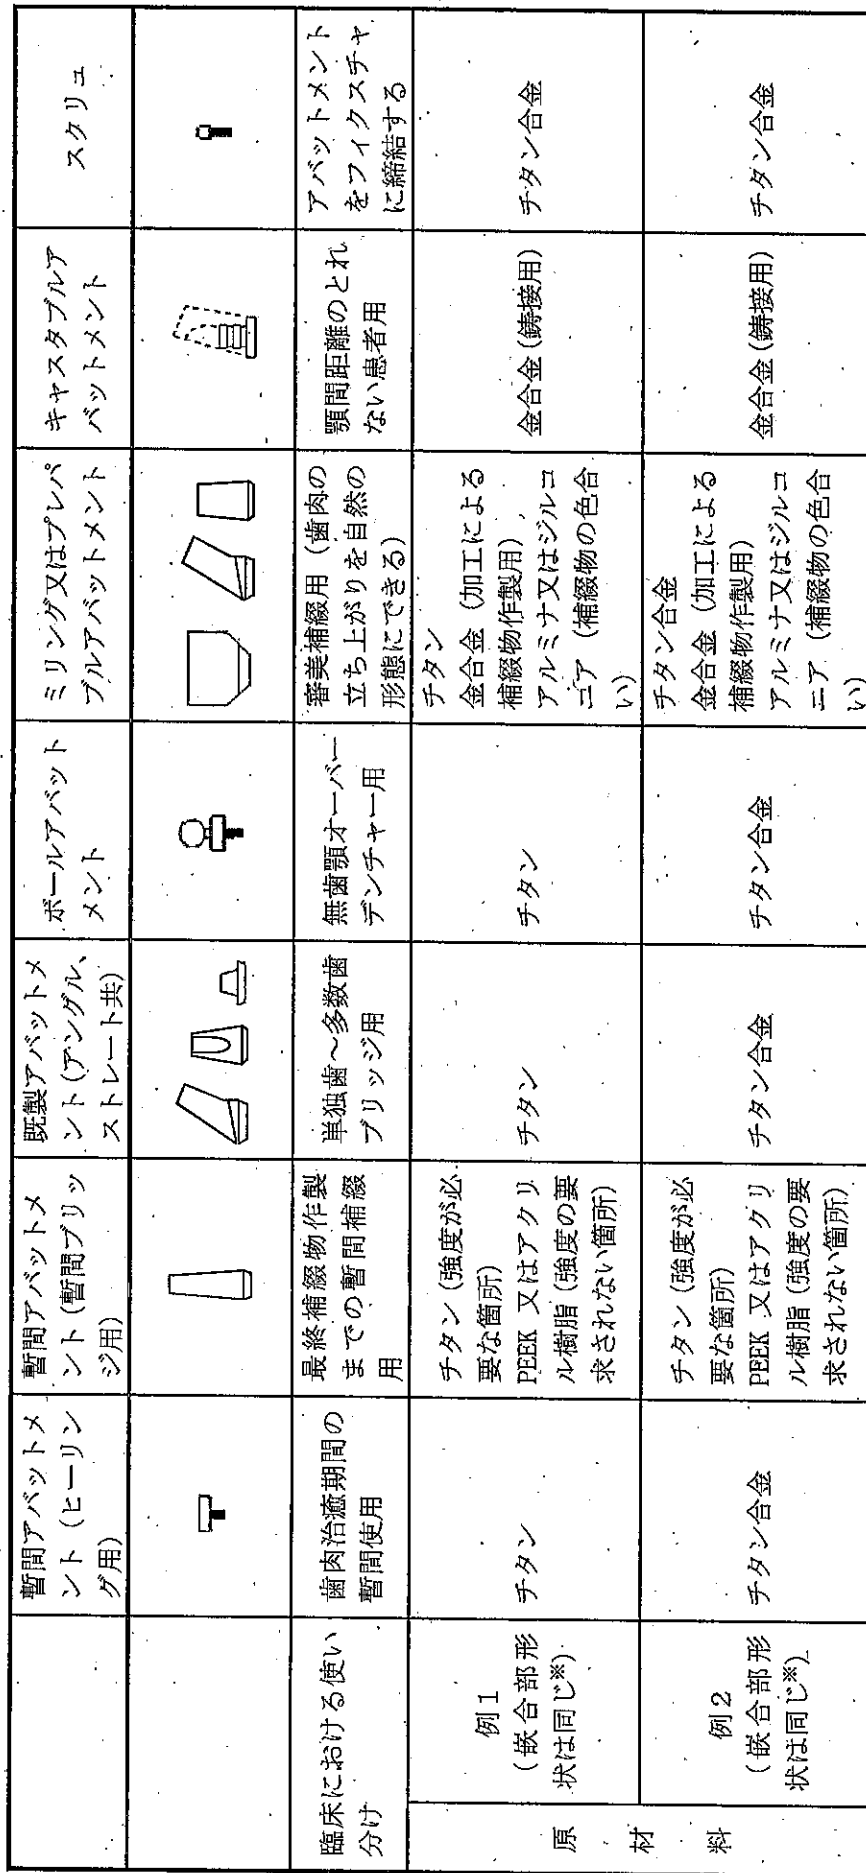 暫間アバットメ
ント（ヒーリン
グ用）
暫間アバットメ
ント（暫間ブリッ
ジ用）
既製アバットメ
ント（アングル、
ストレート共）
ボールアバット
メント
ミリング又はプレパ
ブルアバットメント
キャスタブルア
バットメント
スクリュ
臨床における使い
分け
歯肉治癒期間の
暫間使用
最終補綴物作製
までの暫間補綴
用
単独歯～多数歯
ブリッジ用
無歯顎オーバー
デンチャー用
審美補綴用（歯肉の
立ち上がりを自然の
形態にできる）
顎間距離のとれ
ない患者用
アバットメント
をフィクスチャ
に締結する
原材料
例1
（嵌合部形
状は同じ※）
チタン
チタン（強度が必
要な箇所）
PEEK 又はアクリ
ル樹脂（強度の要
求されない箇所）
チタン
チタン
チタン
金合金（加工による
補綴物作製用）
アルミナ又はジルコ
ニア（補綴物の色合
い）
金合金（鋳接用）
チタン合金
例2
（嵌合部形
状は同じ※）
チタン合金
チタン（強度が必
要な箇所）
PEEK 又はアクリ
ル樹脂（強度の要
求されない箇所）
チタン合金
チタン合金
チタン合金
金合金（加工による
補綴物作製用）
アルミナ又はジルコ
ニア（補綴物の色合
い）
金合金（鋳接用）
チタン合金